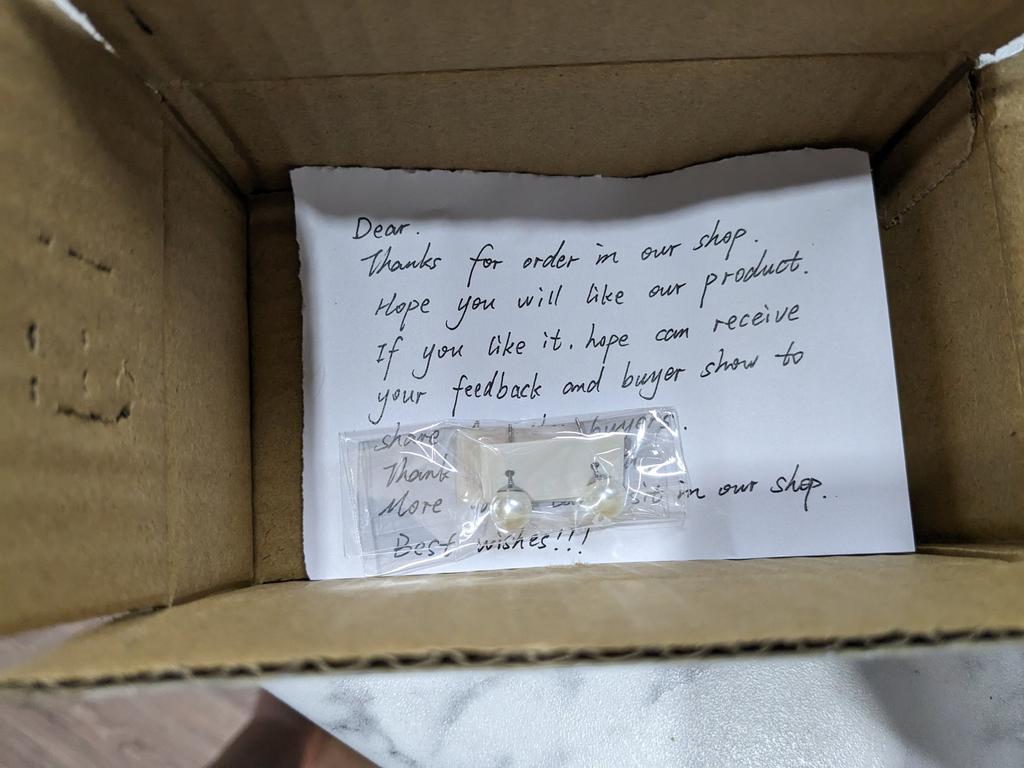 Dear.
Thanks for order in our shop.
Hope you will like our product.
If you like it. hope can receive
your feedback and buyer show to
share buyers.
Thank
More in our shop.
Best wishes!!!